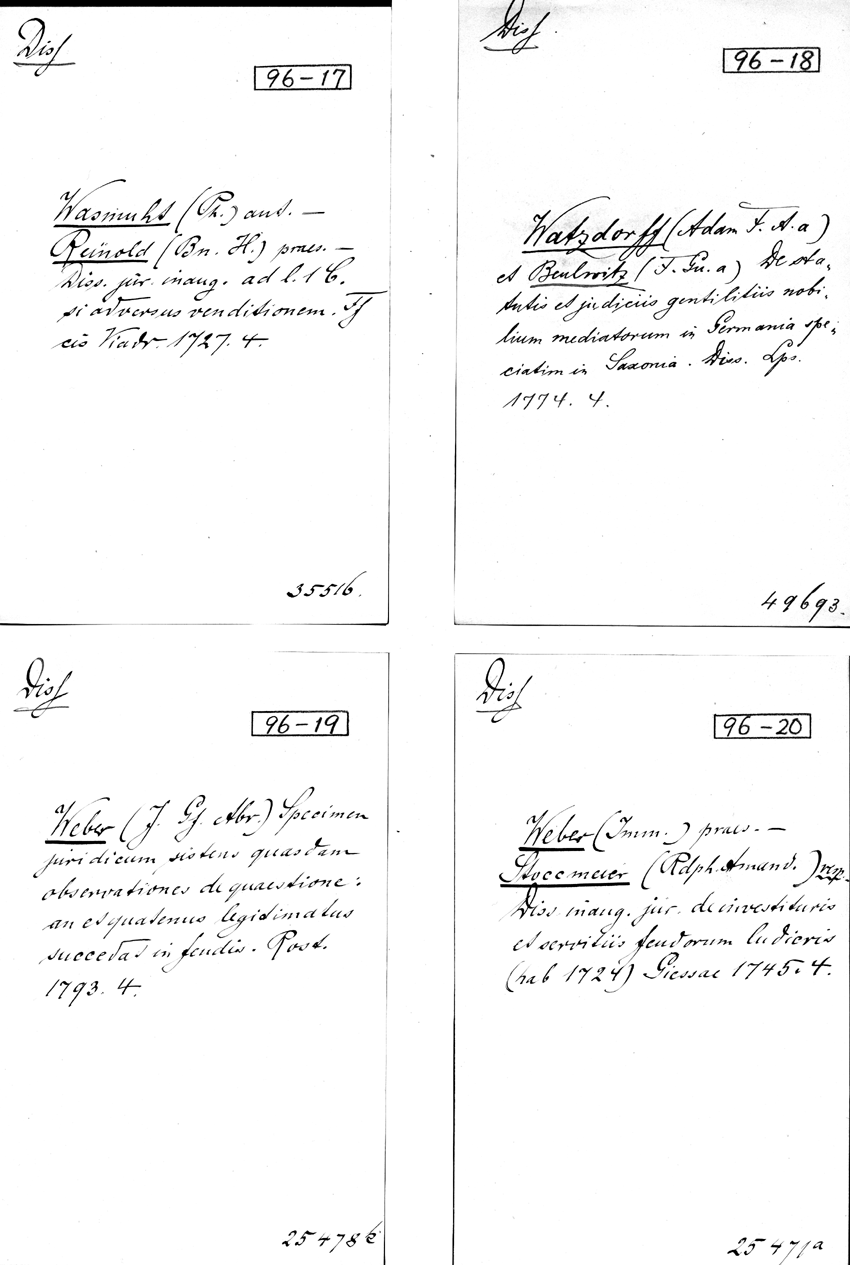 Diss
96-17
Wasmuht (Ph.) aut. —
Reinold (Bn. H.) praes. —
Diss. jur. inaug. ad l. 1 C.
si adversus venditionem. Ff
cis Viadr. 1727. 4.
35516.
Diss.
96-18
Watzdorff (Adam F. A. a)
et Beulwitz (F. Gu. a) De sta-
tutis et judiciis gentilitiis nobi-
lium mediatorum in Germania spe-
ciatim in Saxonia. Diss. Lps.
1774. 4.
49693.
Diss
96-19
Weber (J. Gf. Abr.) Specimen
juridicum sistens quasdam
observationes de quaestione:
an et quatenus legitimatus
succedat in feudis. Rost.
1793. 4.
25478k
Diss
96-20
Weber (Imm.) praes. —
Stoccmeier (Rdph. Amand.) resp.
Diss. inaug. jur. de investituris
et servitiis feudorum ludicris
(hab 1724) Giessae 1745. 4.
25471a